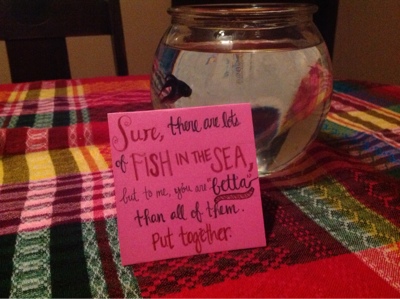 Sure, there are lots
of FISH IN THE SEA,
but to me, you are "betta"
than all of them.
Put together.